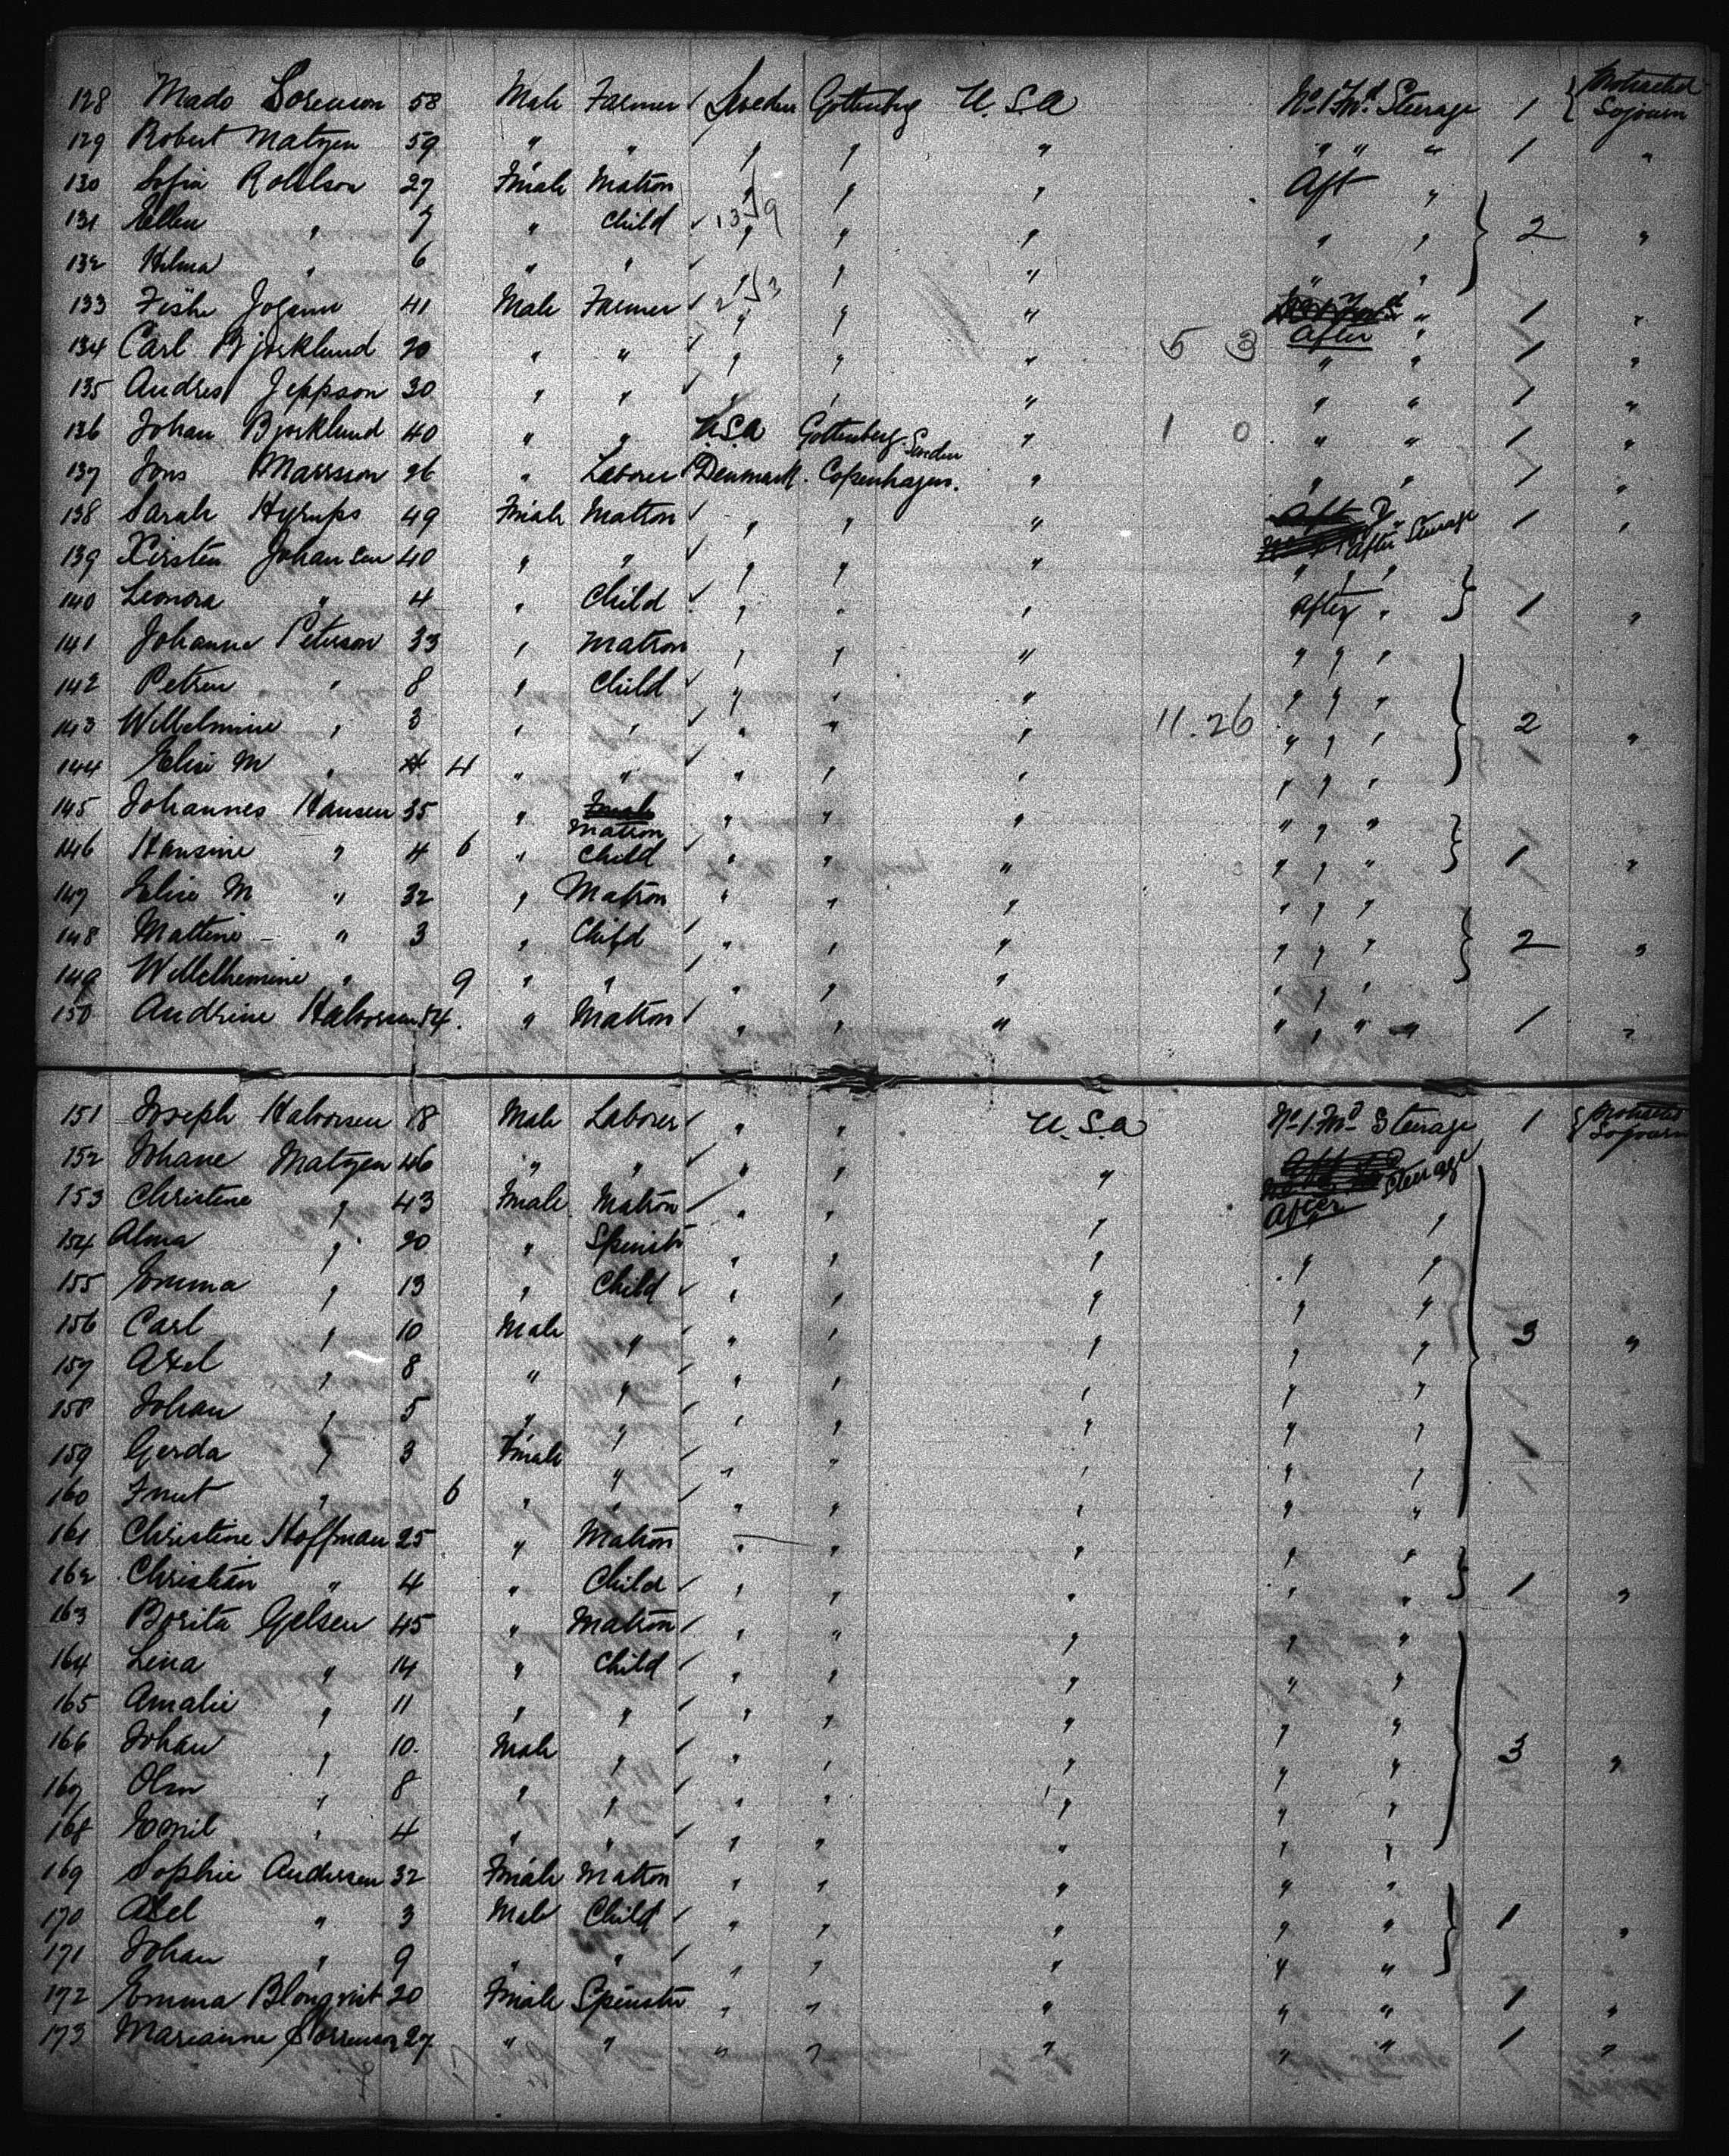 128 Mads Sorenson 58 Male Farmer Sweden Gottenberg U.S.A No 1 Fwd Steerage 1 { Protracted Sojourn
129 Robert Matzen 59 " " " " " " " " 1 "
130 Sofia 27 Female Matron " " " Aft "
131 Ellen " 7 " Child " " " " " 2 "
132 Hilma " 6 " " " " " " "
133 Johann 41 Male Farmer " " " " 1 "
134 Carl Bjorklund 20 " " " " " After " 1 "
5 3
135 Andres Jeppson 30 " " " " " " " 1 "
136 Johan Bjorklund 40 " " U.S.A Gottenberg Sweden " 1 0 " " 1 "
137 Jons Marsson 26 " Laborer Denmark Copenhagen " " " 1 "
138 Sarah Hyrups 49 Female Matron " " " After Steerage 1 "
139 Kirsten Johansen 40 " " " " " " " "
140 Leonora " 4 " Child " " " After " 1 "
141 Johanne Peterson 33 " Matron " " " " " "
142 Petrea " 8 " Child " " " " " "
143 Wilhelmine " 3 " " " " " 11.26 " " " 2 "
144 Elise M " 4 " " " " " " " "
145 Johannes Hansen 35 " Matron " " " " " "
146 Hansine " 4 6 " Child " " " " " " 1 "
147 Elise M " 32 " Matron " " " " " "
148 Mattine " 3 " Child " " " " " " 2 "
149 Willelhemine " 9 " " " " " " " "
150 Andrine Halvorsen 54 " Matron " " " " " " " 1 "
151 Joseph Halvorsen 18 Male Laborer " " U.S.A No 1 Fwd Steerage 1 { Protracted Sojourn
152 Johane Matzen 46 " " " " " Steerage
153 Christine " 43 Female Matron " " " After "
154 Alma " 20 " Spinster " " " " "
155 Emma " 13 " Child " " " " "
156 Carl " 10 Male " " " " " " 3 "
157 Axel " 8 " " " " " " "
158 Johan " 5 " " " " " " "
159 Gerda " 3 Female " " " " " "
160 Knut " 6 " " " " " " "
161 Christine Hoffman 25 " Matron " " " " "
162 Christian " 4 " Child " " " " " 1 "
163 Borita Gelsen 45 " Matron " " " " "
164 Lina " 14 " Child " " " " "
165 Amalie " 11 " " " " " " "
166 Johan " 10 Male " " " " " " 3 "
167 Olm " 8 " " " " " " "
168 Emil " 4 " " " " " " "
169 Sophie Andersen 32 Female Matron " " " " "
170 Axel " 3 Male Child " " " " " 1 "
171 Johan " 9 " " " " " " "
172 Emma Blomqvist 20 Female Spinster " " " " " 1 "
173 Marianne Sorrenson 27 " " " " " " " 1 "